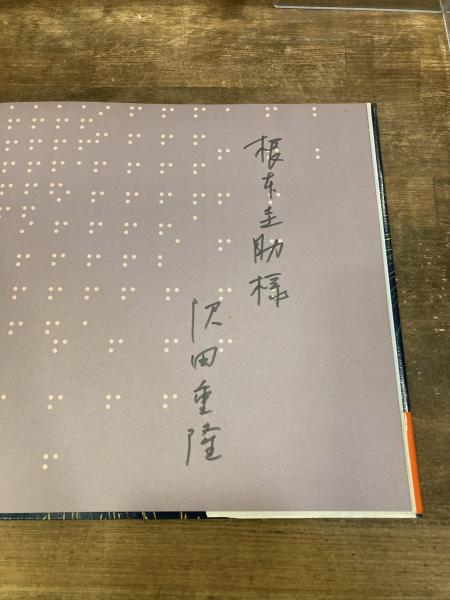 根本圭助様
沢田重隆